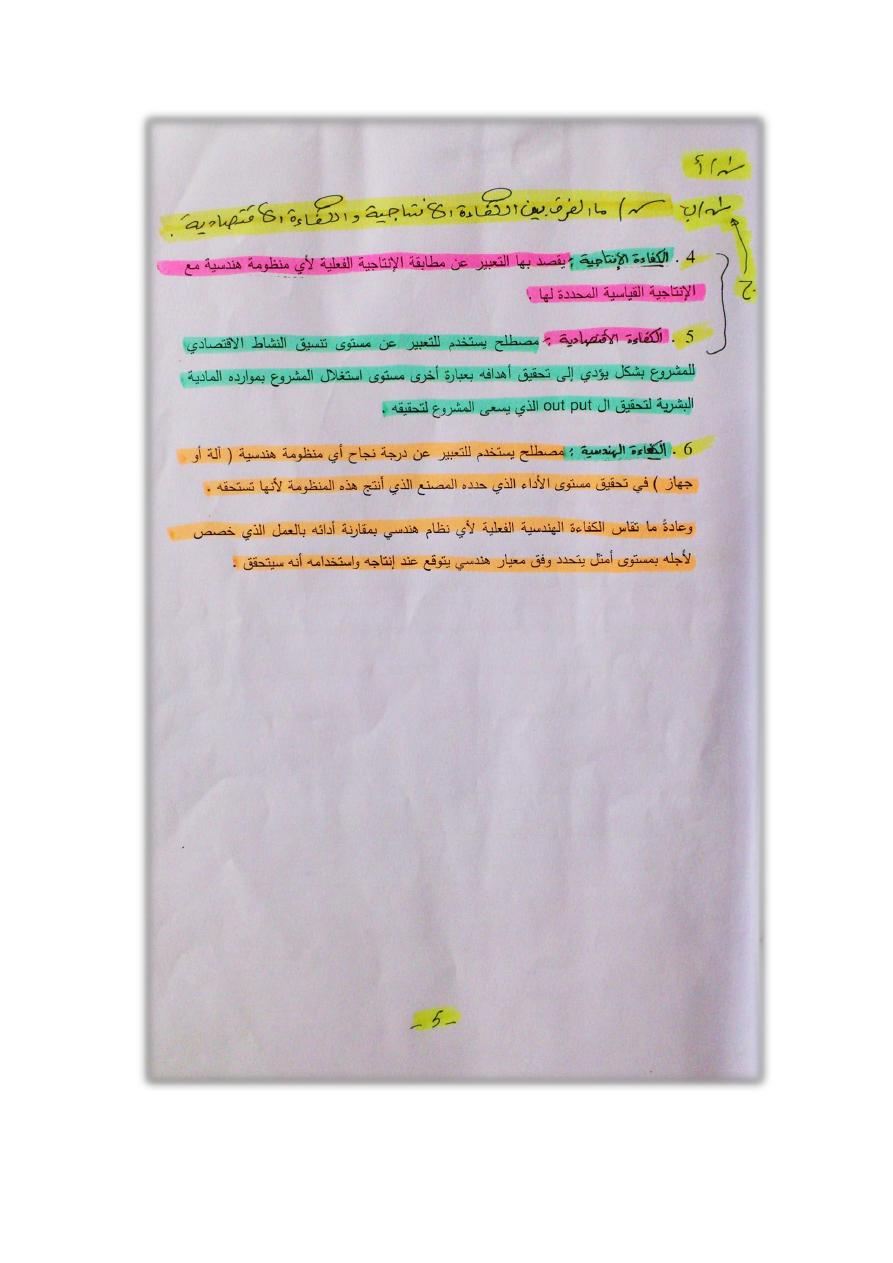 س/أ
س/ب س/ ما الفرق بين الكفاءة الانتاجية والكفاءة الاقتصادية.
ج
4 . الكفاءة الإنتاجية : يقصد بها التعبير عن مطابقة الإنتاجية الفعلية لأي منظومة هندسية مع
الإنتاجية القياسية المحددة لها .
5 . الكفاءة الأقتصادية : مصطلح يستخدم للتعبير عن مستوى تنسيق النشاط الاقتصادي
للمشروع بشكل يؤدي إلى تحقيق أهدافه بعبارة أخرى مستوى استغلال المشروع بموارده المادية
البشرية لتحقيق ال out put الذي يسعى المشروع لتحقيقه .
6 . الكفاءة الهندسية : مصطلح يستخدم للتعبير عن درجة نجاح أي منظومة هندسية ( آلة أو
جهاز ) في تحقيق مستوى الأداء الذي حدده المصنع الذي أنتج هذه المنظومة لأنها تستحقه .
وعادةً ما تقاس الكفاءة الهندسية الفعلية لأي نظام هندسي بمقارنة أدائه بالعمل الذي خصص
لأجله بمستوى أمثل يتحدد وفق معيار هندسي يتوقع عند إنتاجه واستخدامه أنه سيتحقق .
- 5 -